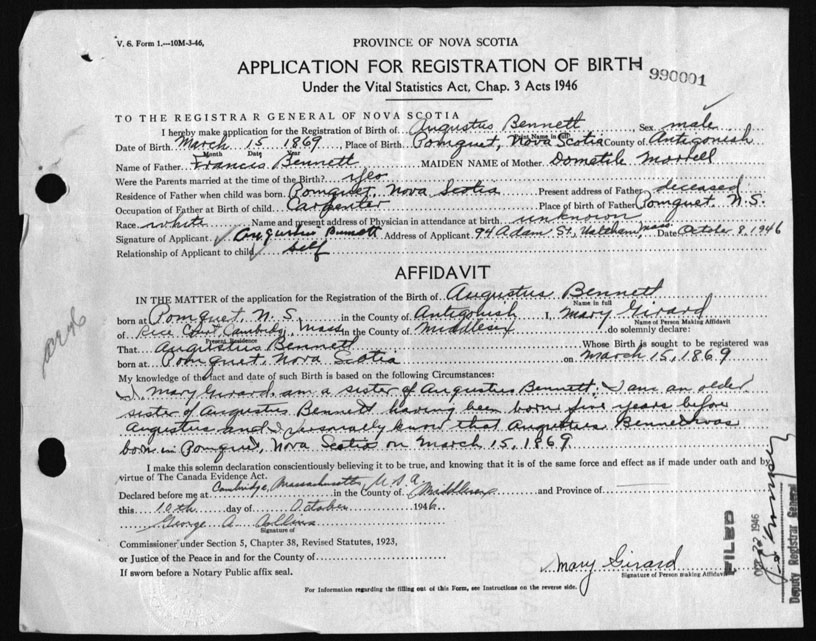 V. S. Form 1.—10M-3-46,
PROVINCE OF NOVA SCOTIA
APPLICATION FOR REGISTRATION OF BIRTH
990001
Under the Vital Statistics Act, Chap. 3 Acts 1946
TO THE REGISTRAR GENERAL OF NOVA SCOTIA
I hereby make application for the Registration of Birth of Augustus Bennett Sex male
Print Name in full
Date of Birth March 15 1869 Place of Birth Pomquet, Nova Scotia County of Antigonish
Month Date Year
Name of Father Francis Bennett MAIDEN NAME of Mother Dometile Morrell
Were the Parents married at the time of the Birth? Yes
Residence of Father when child was born Pomquet, Nova Scotia Present address of Father deceased
Occupation of Father at Birth of child Carpenter Place of birth of Father Pomquet N.S.
Race white Name and present address of Physician in attendance at birth unknown
Signature of Applicant Augustus Bennett Address of Applicant 94 Adam St., Waltham, Mass. Date October 8, 1946
Relationship of Applicant to child self
AFFIDAVIT
IN THE MATTER of the application for the Registration of the Birth of Augustus Bennett
Name in full
born at Pomquet, N. S. in the County of Antigonish I, Mary Girard
Name of Person Making Affidavit
of Rice Court, Cambridge, Mass in the County of Middlesex do solemnly declare:
Present Residence
That Augustus Bennett Whose Birth is sought to be registered was
born at Pomquet, Nova Scotia on March 15, 1869
My knowledge of the fact and date of such Birth is based on the following Circumstances:
I, Mary Girard, am a sister of Augustus Bennett; I am an older
sister of Augustus Bennett having been born five years before
Augustus and I personally know that Augustus Bennett was
born in Pomquet, Nova Scotia on March 15, 1869
I make this solemn declaration conscientiously believing it to be true, and knowing that it is of the same force and effect as if made under oath and by
virtue of The Canada Evidence Act.
Declared before me at Cambridge, Massachusetts, U.S.A. in the County of Middlesex and Province of
this 10th day of October 1946
George A. Collins
Signature of
Commissioner under Section 5, Chapter 38, Revised Statutes, 1923,
or Justice of the Peace in and for the County of
If sworn before a Notary Public affix seal.
Mary Girard
Signature of Person Making Affidavit
For Information regarding the filling out of this Form, see Instructions on the reverse side.
FILED
22 1946
Deputy Registrar General